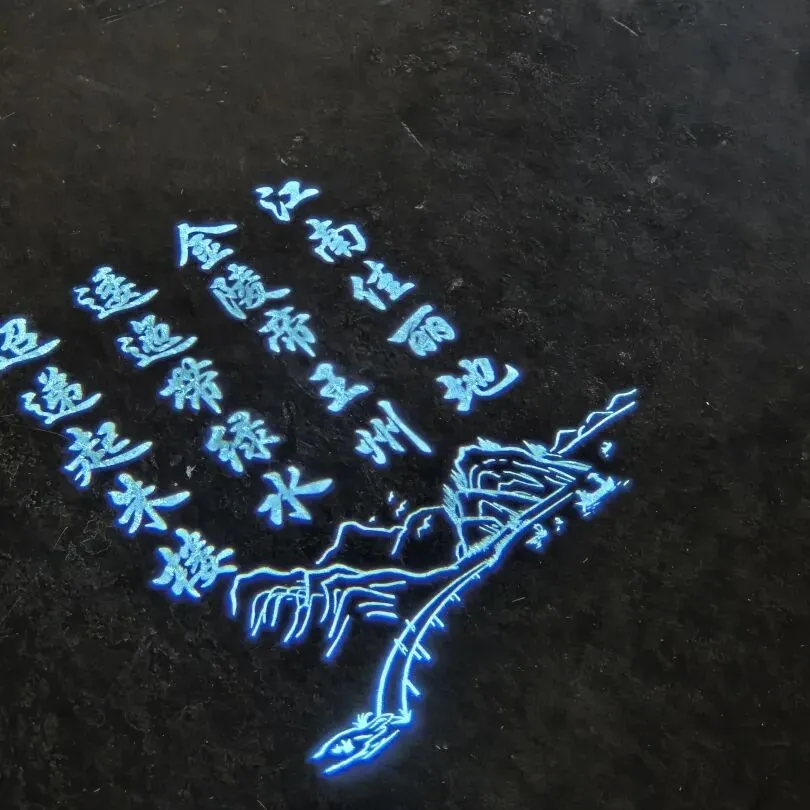 江南佳丽地
金陵帝王州
逶迤带绿水
迢递起朱楼